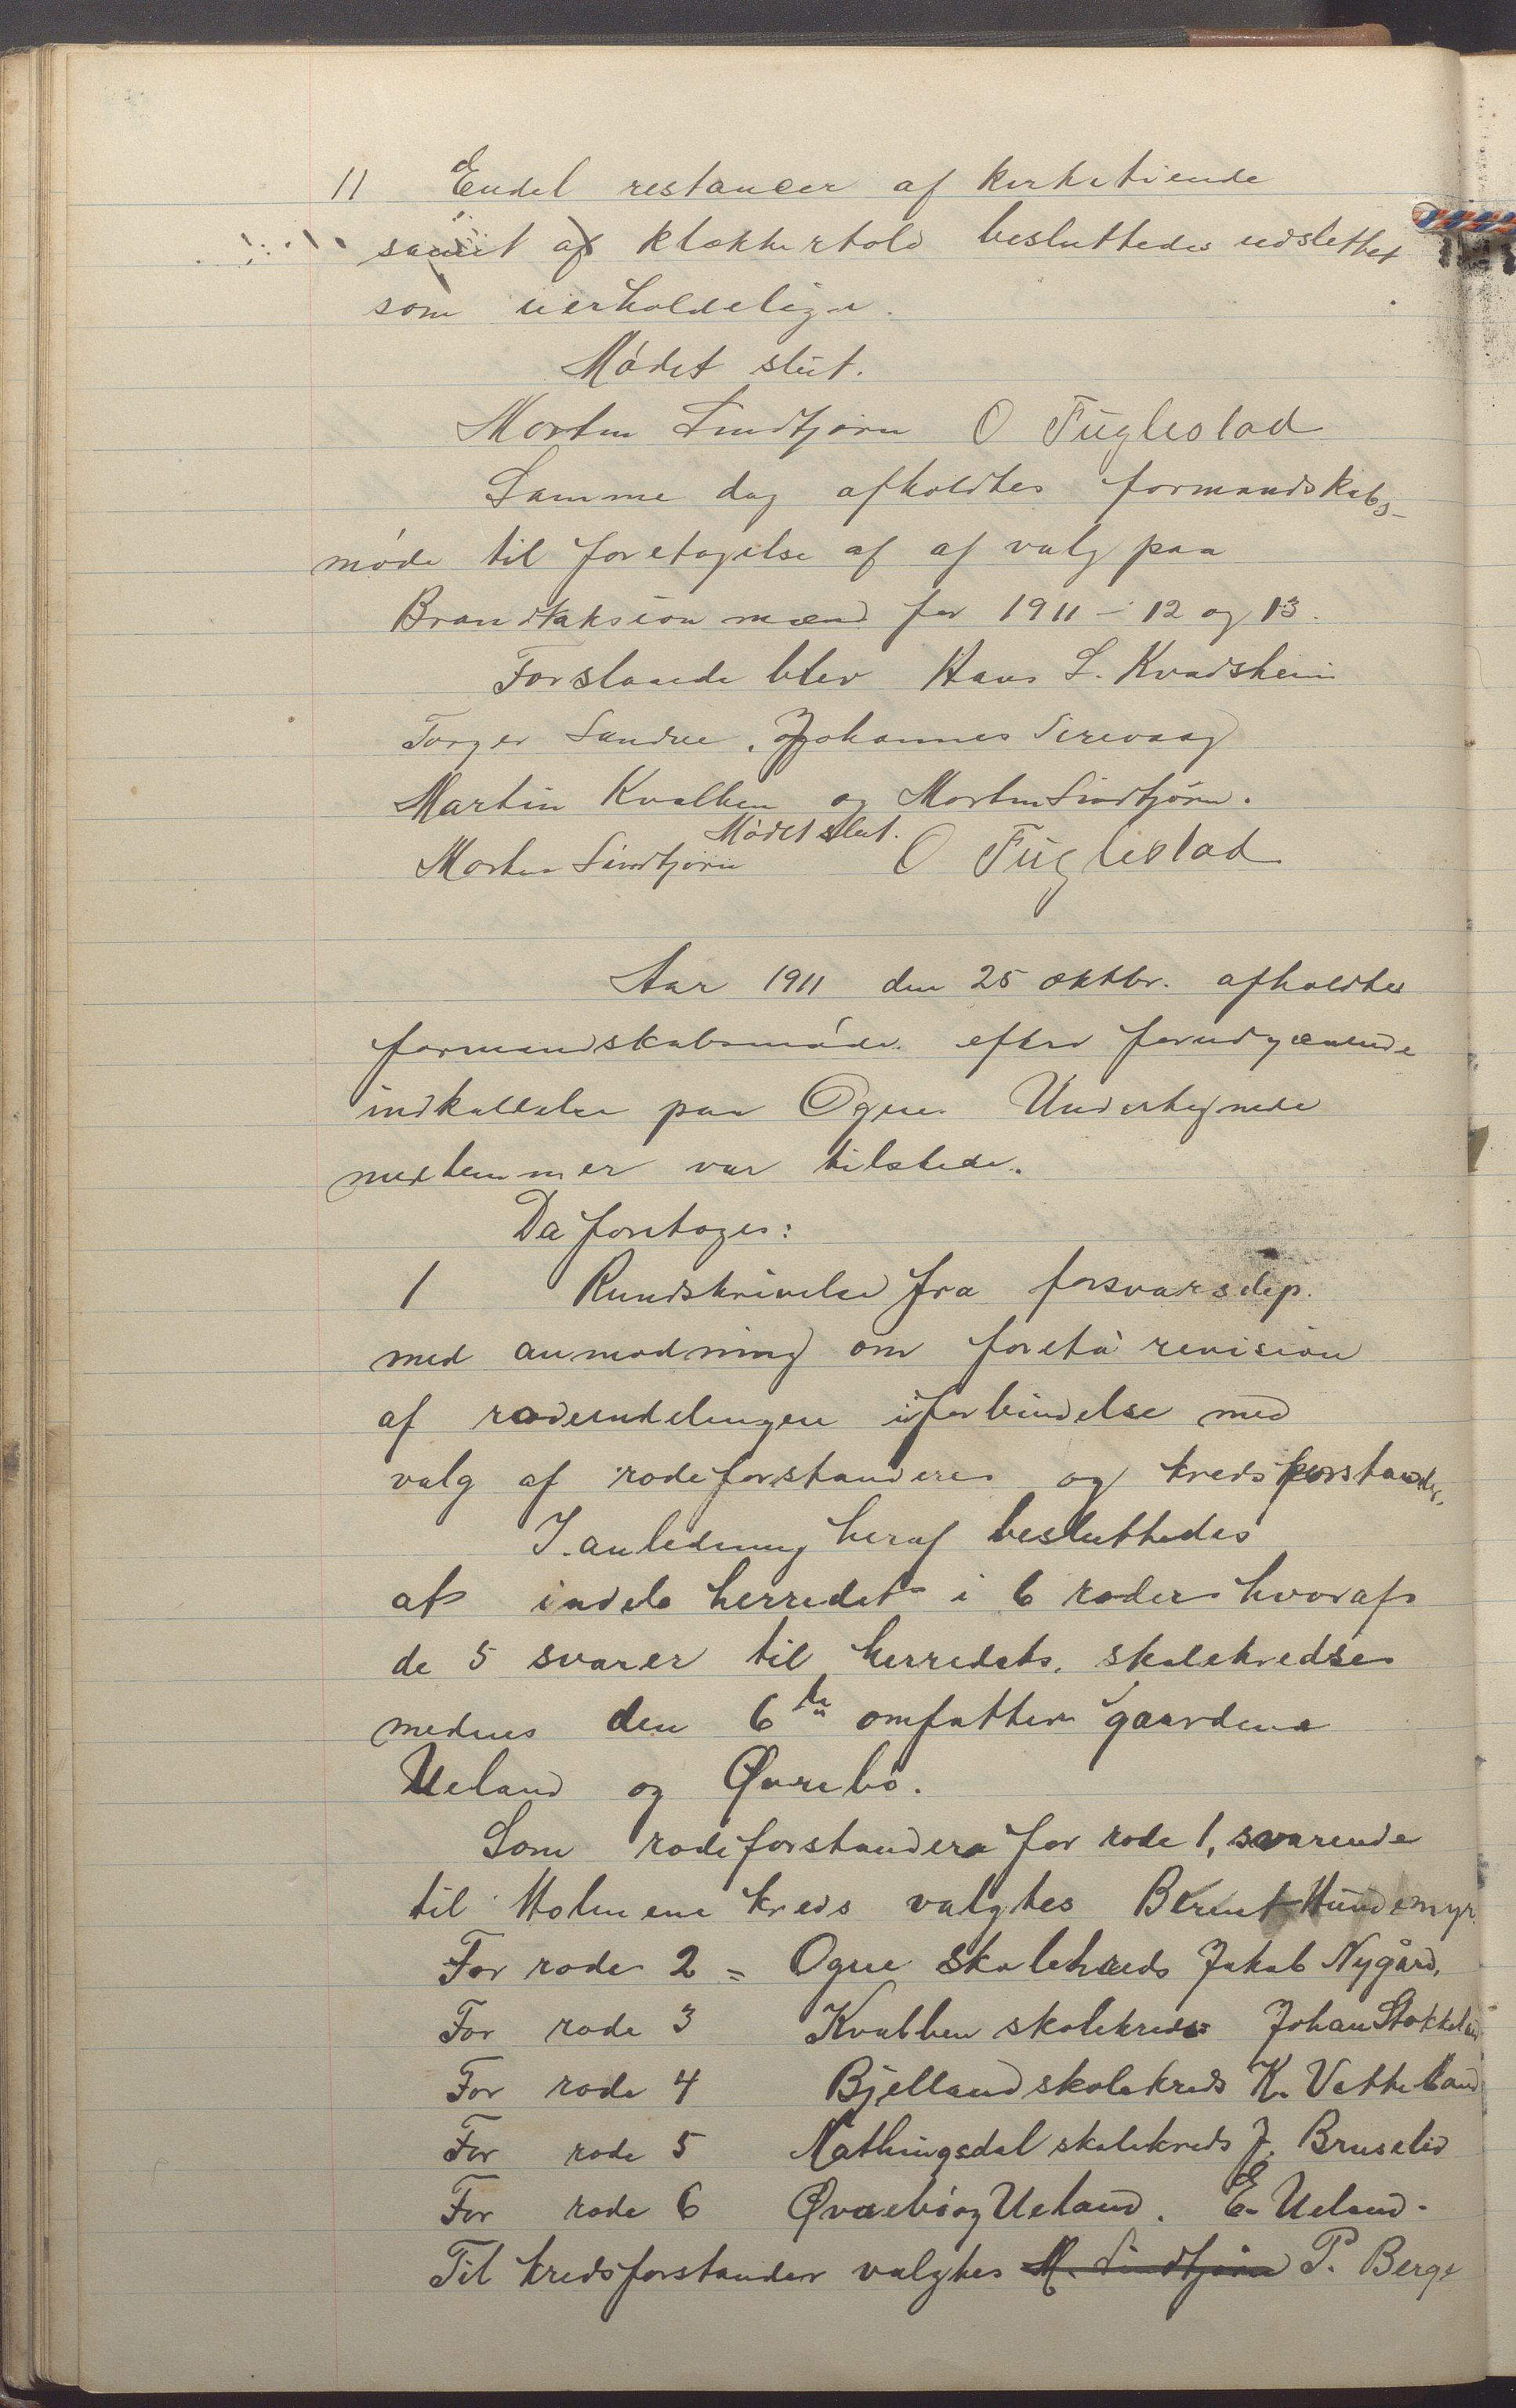 11 Endel restancer af kirketiende
samt af klokkertold besluttedes udslettet
som uerholdelige.
Mødet slut.
Morten Lindtjørn O Fuglestad
Samme dag afholdtes formandskabs-
møde til foretagelse af af valg paa
Brandtaksion mænd for 1911 – 12 og 13.
Forslaaede blev Hans L. Kvadsheim
Torger Lundee, Johannes Sirevaag
Martin Kvalben og Morten Lindtjørn.
Mødet slut.
Morten Lindtjørn O Fuglestad
Aar 1911 den 25 oktbr. afholdtes
formandskabsmøde efter forudgaaende
indkallelse paa Ogne. Undertegnede
medlemmer var tilstede.
Da foretoges:
1 Rundskrivelse fra forsvarsdep.
med anmodning om foreta revision
af rodeindelingen iforbindelse med
valg af rodeforstandere og kredsforstander.
I. anledning heraf besluttedes
at indele herredet i 6 roder hvoraf
de 5 svarer til herredets skolekredse
medens den 6te omfatter gaardene
Ueland og Øvrebø.
Som rodeforstandere for rode 1, svarende
til Holmene kreds valgtes Berent Hundemyr.
For rode 2 = Ogne skolekreds Jakob Nygård.
For rode 3 Kvalben skolekreds Johan Stokkeland
For rode 4 Bjelland skolekreds K. Vetteland
For rode 5 Mathingsdal skolekreds J. Bruselid
For rode 6 Øvrebø og Ueland. E. Ueland.
Til kredsforstander valgtes M. Lindtjørn P. Berge